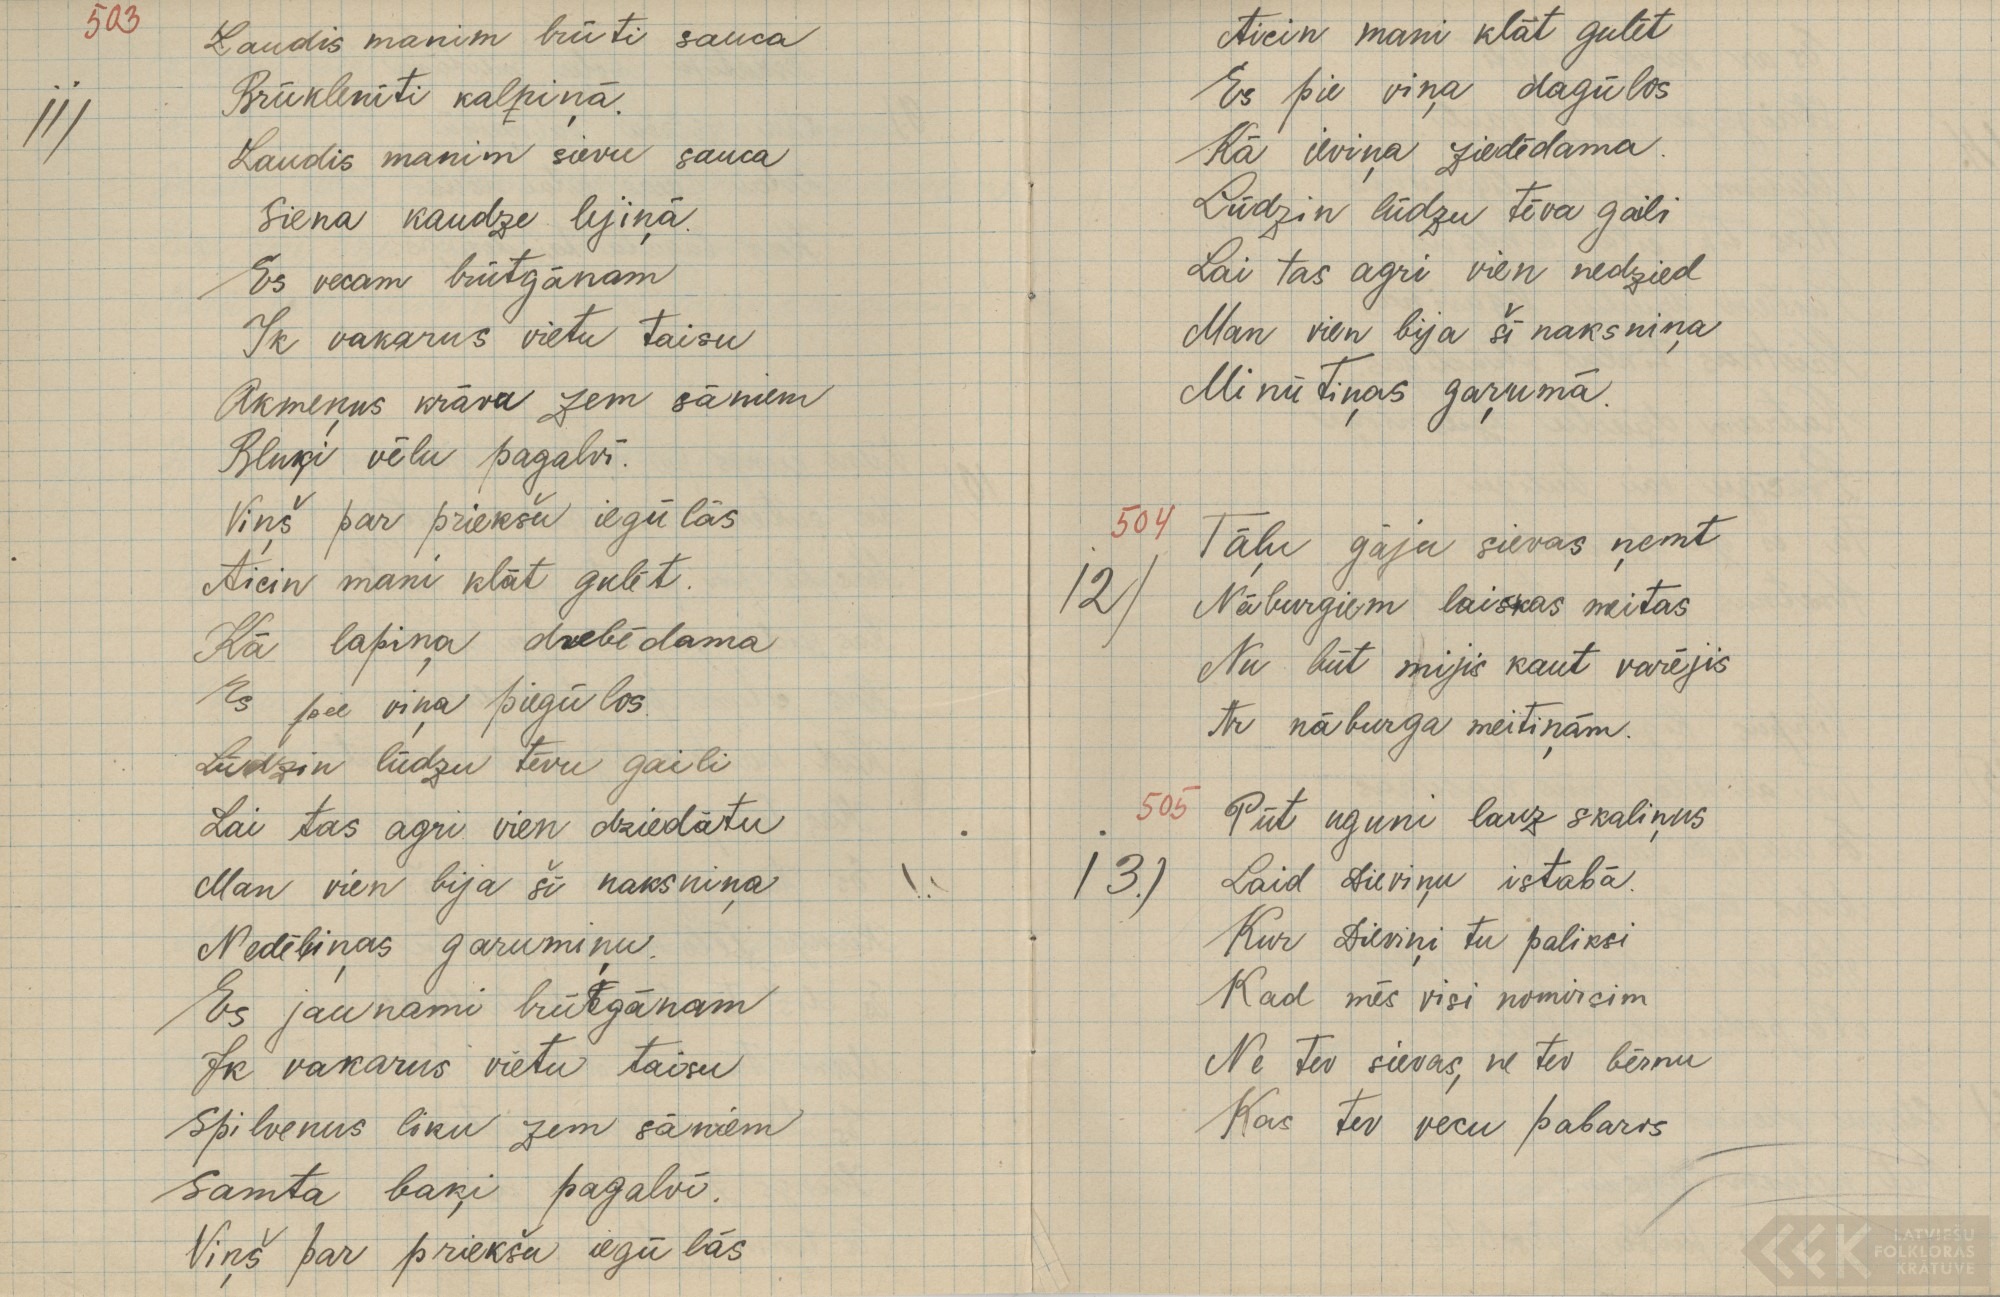 503
11)
Laudis manim brūti sauca
Brūklenīti kalpiņā.
Laudis manim sievu sauca
Siena kaudze lejiņā.
Es vecam brūtgānam
Ik vakarus vietu taisu
Akmeņus krāva zem sāniem
Bluķi vēlu pagalvī.
Viņš par priekšu iegūlās
Aicin mani klāt gulēt.
Kā lapiņa drebēdama
Es pie viņa piegūlos
Lūdzin lūdzu tēvu gaili
Lai tas agri vien dziedātu
Man vien bija šī naksniņa
Nedēļiņas garumiņu.
Es jaunami brūtgānam
Ik vakarus vietu taisu
Spilvenus liku zem sāniem
Samta baķi pagalvī.
Viņš par priekšu iegūlās
Aicin mani klāt gulēt
Es pie viņa dagūlos
Kā ieviņa ziedēdama.
Lūdzin lūdzu tēva gaili
Lai tas agri vien nedzied
Man vien bija šī naksniņa
Minūtiņas gaŗumā.
504
12)
Tāļu gāja sievas ņemt
Nāburgiem laiskas meitas
Nu būt mijis kaut varējis
Ar nāburga meitiņām.
505
13.)
Pūt uguni lauz skaliņus
Laid Dieviņu istabā.
Kur Dieviņi tu paliksi
Kad mēs visi nomirsim
Ne tev sievas, ne tev bērnu
Kas tev vecu pabaros
LATVIEŠU
FOLKLORAS
KRĀTUVE